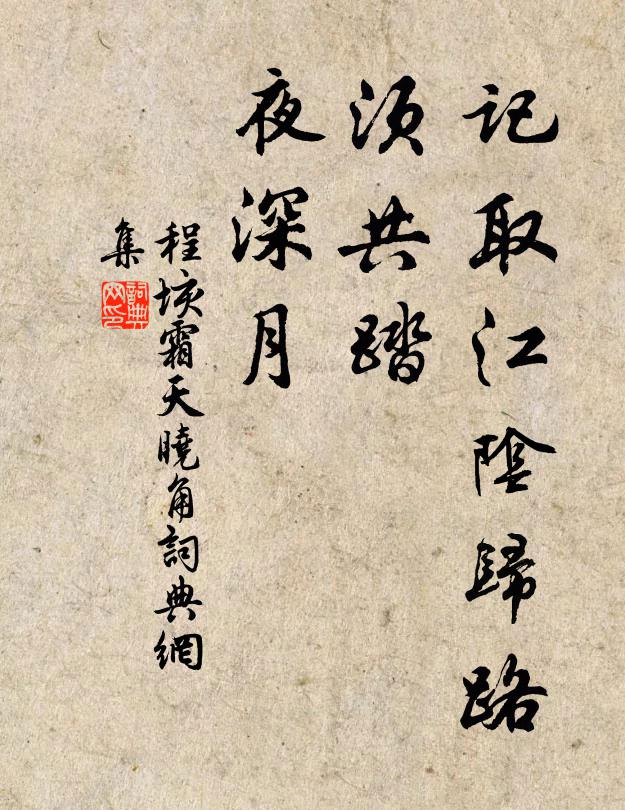 記取江陰歸路
須共踏
夜深月
程垓霜天曉角詞典網
集
詞典
网印